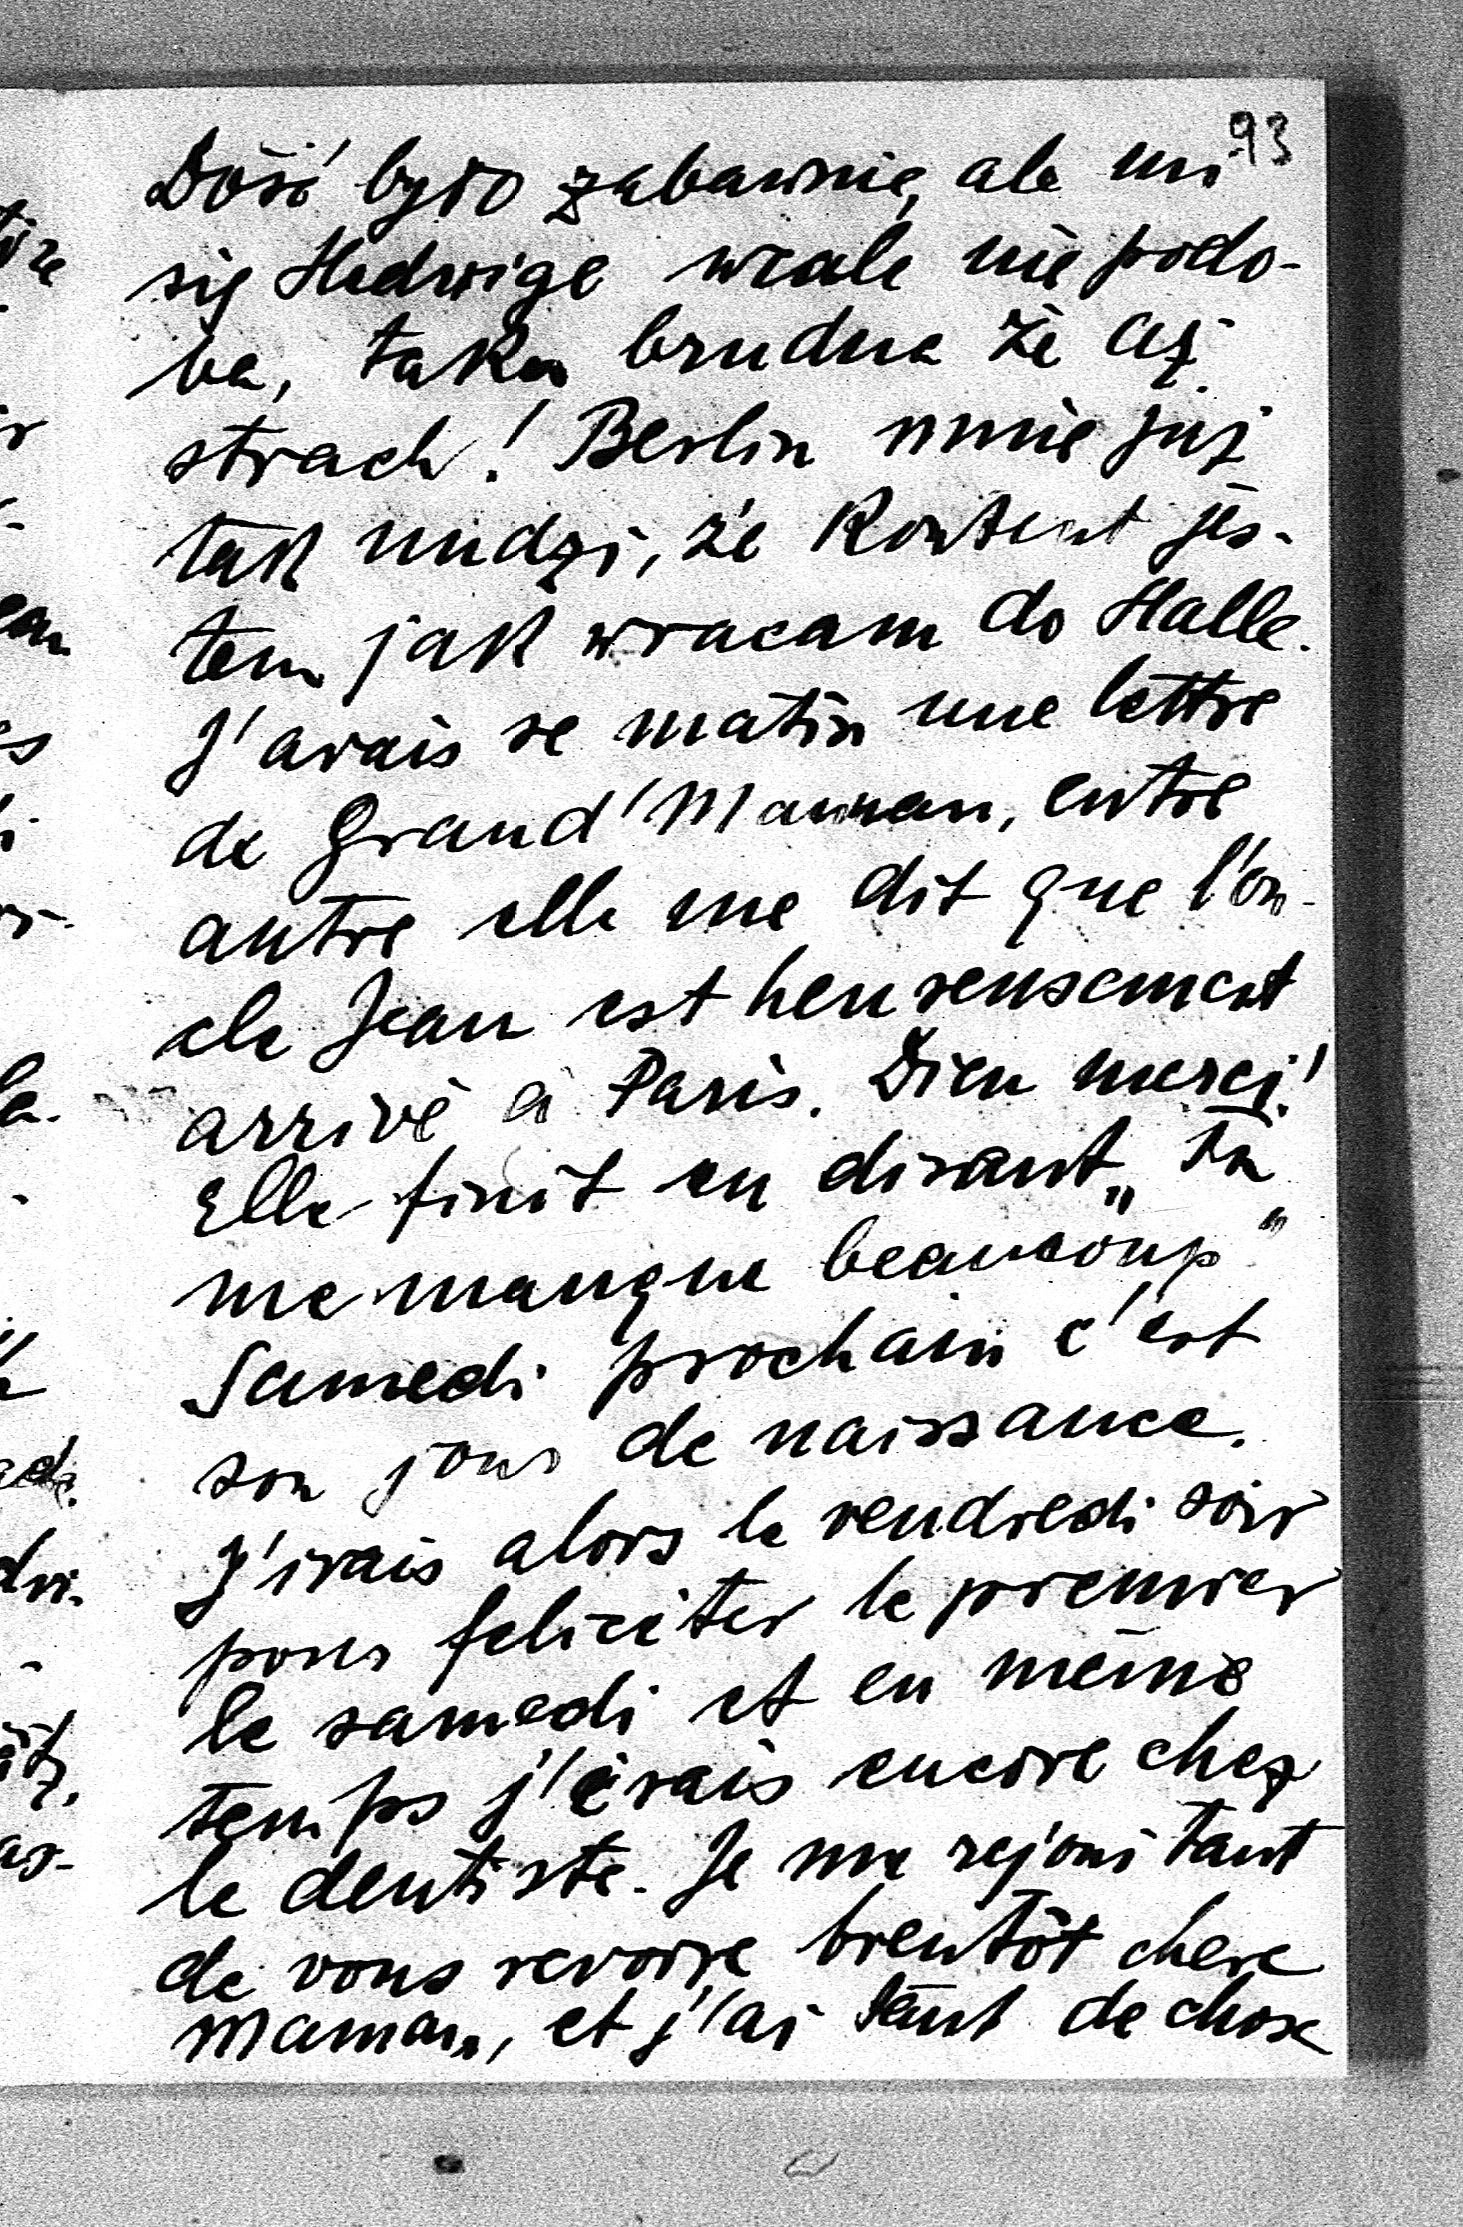 93
Dość było zabawnie, ale mi
się Hedwige wcale nie podo-
ba, taka brudna że aż
strach! Berlin mnie już
tak nudzi, że kontent jes-
tem jak wracam do Halle.
J'avais se matin une lettre
de Grand'Maman, entre
autre elle me dit que l'on-
cle Jean est heureusement
arrivé à Paris. Dieu merci!
Elle finit en disant „tu
me manque beaucoup"
Samedi prochain c'est
son jour de naissance.
J'irais alors le vendredi soir
pour feliciter le premier
le samedi et en même
temps j'irais encore chez
le dentiste. Je me rejoui tant
de vous revoire bientôt chere
Maman, et j'ai tant de chose